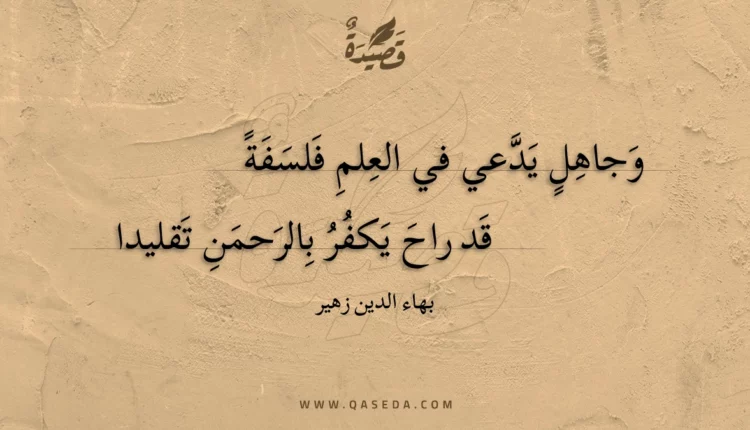 قَصِيدَةٌ
وَجاهِلٍ يَدَّعي في العِلمِ فَلسَفَةً
قَد راحَ يَكفُرُ بِالرَحمَنِ تَقليدا
بهاء الدين زهير
WWW.QASEDA.COM